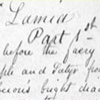 Lamia
Part 1st
before the faery
ple and Satyr from
cious bright dia